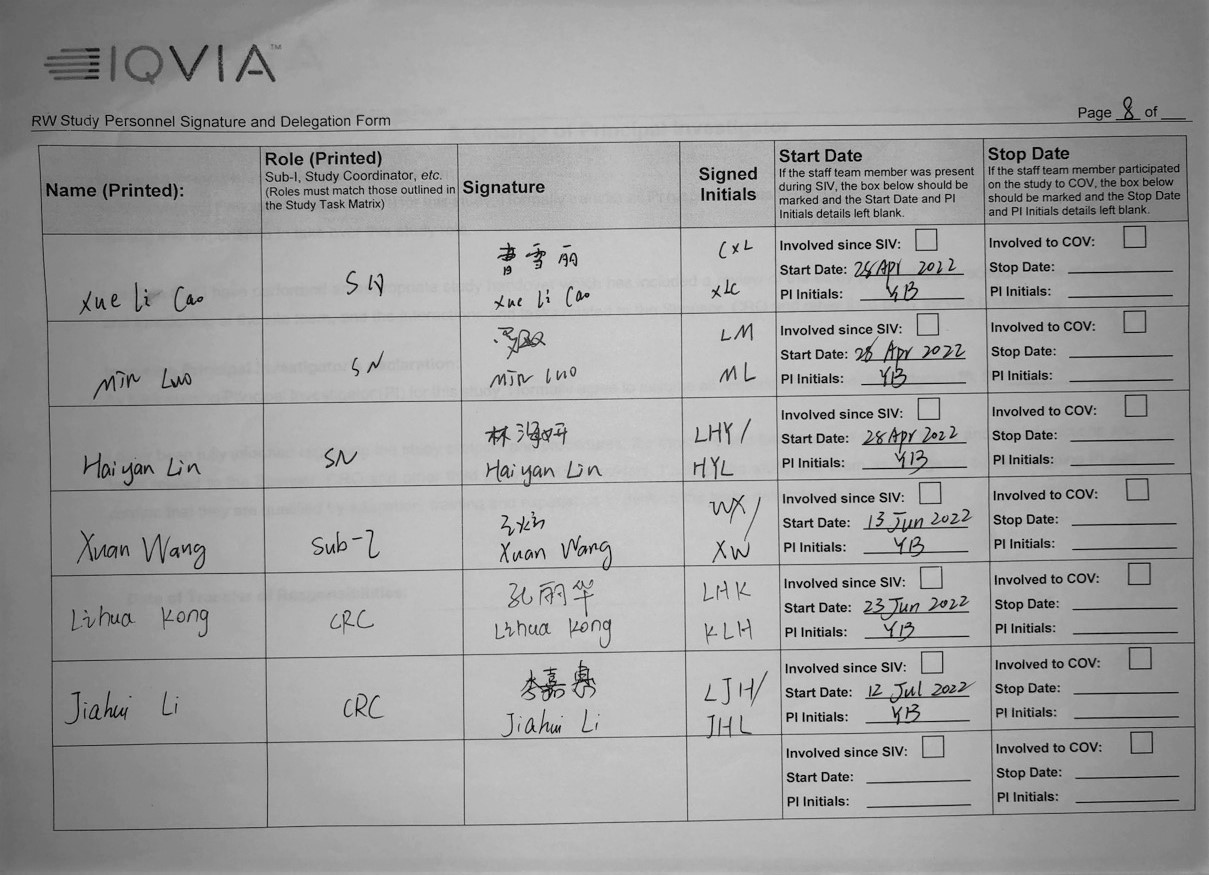 IQVIA™
RW Study Personnel Signature and Delegation Form
Page 8 of ___
Name (Printed):
Role (Printed)
Sub-I, Study Coordinator, etc.
(Roles must match those outlined in
the Study Task Matrix)
Signature
Signed
Initials
Start Date
If the staff team member was present
during SIV, the box below should be
marked and the Start Date and PI
Initials details left blank.
Stop Date
If the staff team member participated
on the study to COV, the box below
should be marked and the Stop Date
and PI Initials details left blank.
Xue Li Cao
SN
曹雪丽
Xue Li Cao
CXL
XLC
Involved since SIV:
Start Date: 28 Apr 2022
PI Initials: YB
Involved to COV:
Stop Date:
PI Initials:
Min Luo
SN
Min Luo
LM
ML
Involved since SIV:
Start Date: 28 Apr 2022
PI Initials: YB
Involved to COV:
Stop Date:
PI Initials:
Haiyan Lin
SN
林海妍
Haiyan Lin
LHY/
HYL
Involved since SIV:
Start Date: 28 Apr 2022
PI Initials: YB
Involved to COV:
Stop Date:
PI Initials:
Xuan Wang
Sub-I
Xuan Wang
WX/
XW
Involved since SIV:
Start Date: 13 Jun 2022
PI Initials: YB
Involved to COV:
Stop Date:
PI Initials:
Lihua Kong
CRC
孔丽华
Lihua Kong
LHK
KLH
Involved since SIV:
Start Date: 23 Jun 2022
PI Initials: YB
Involved to COV:
Stop Date:
PI Initials:
Jiahui Li
CRC
李嘉惠
Jiahui Li
LJH/
JHL
Involved since SIV:
Start Date: 12 Jul 2022
PI Initials: YB
Involved to COV:
Stop Date:
PI Initials:
Involved since SIV:
Start Date:
PI Initials:
Involved to COV:
Stop Date:
PI Initials: